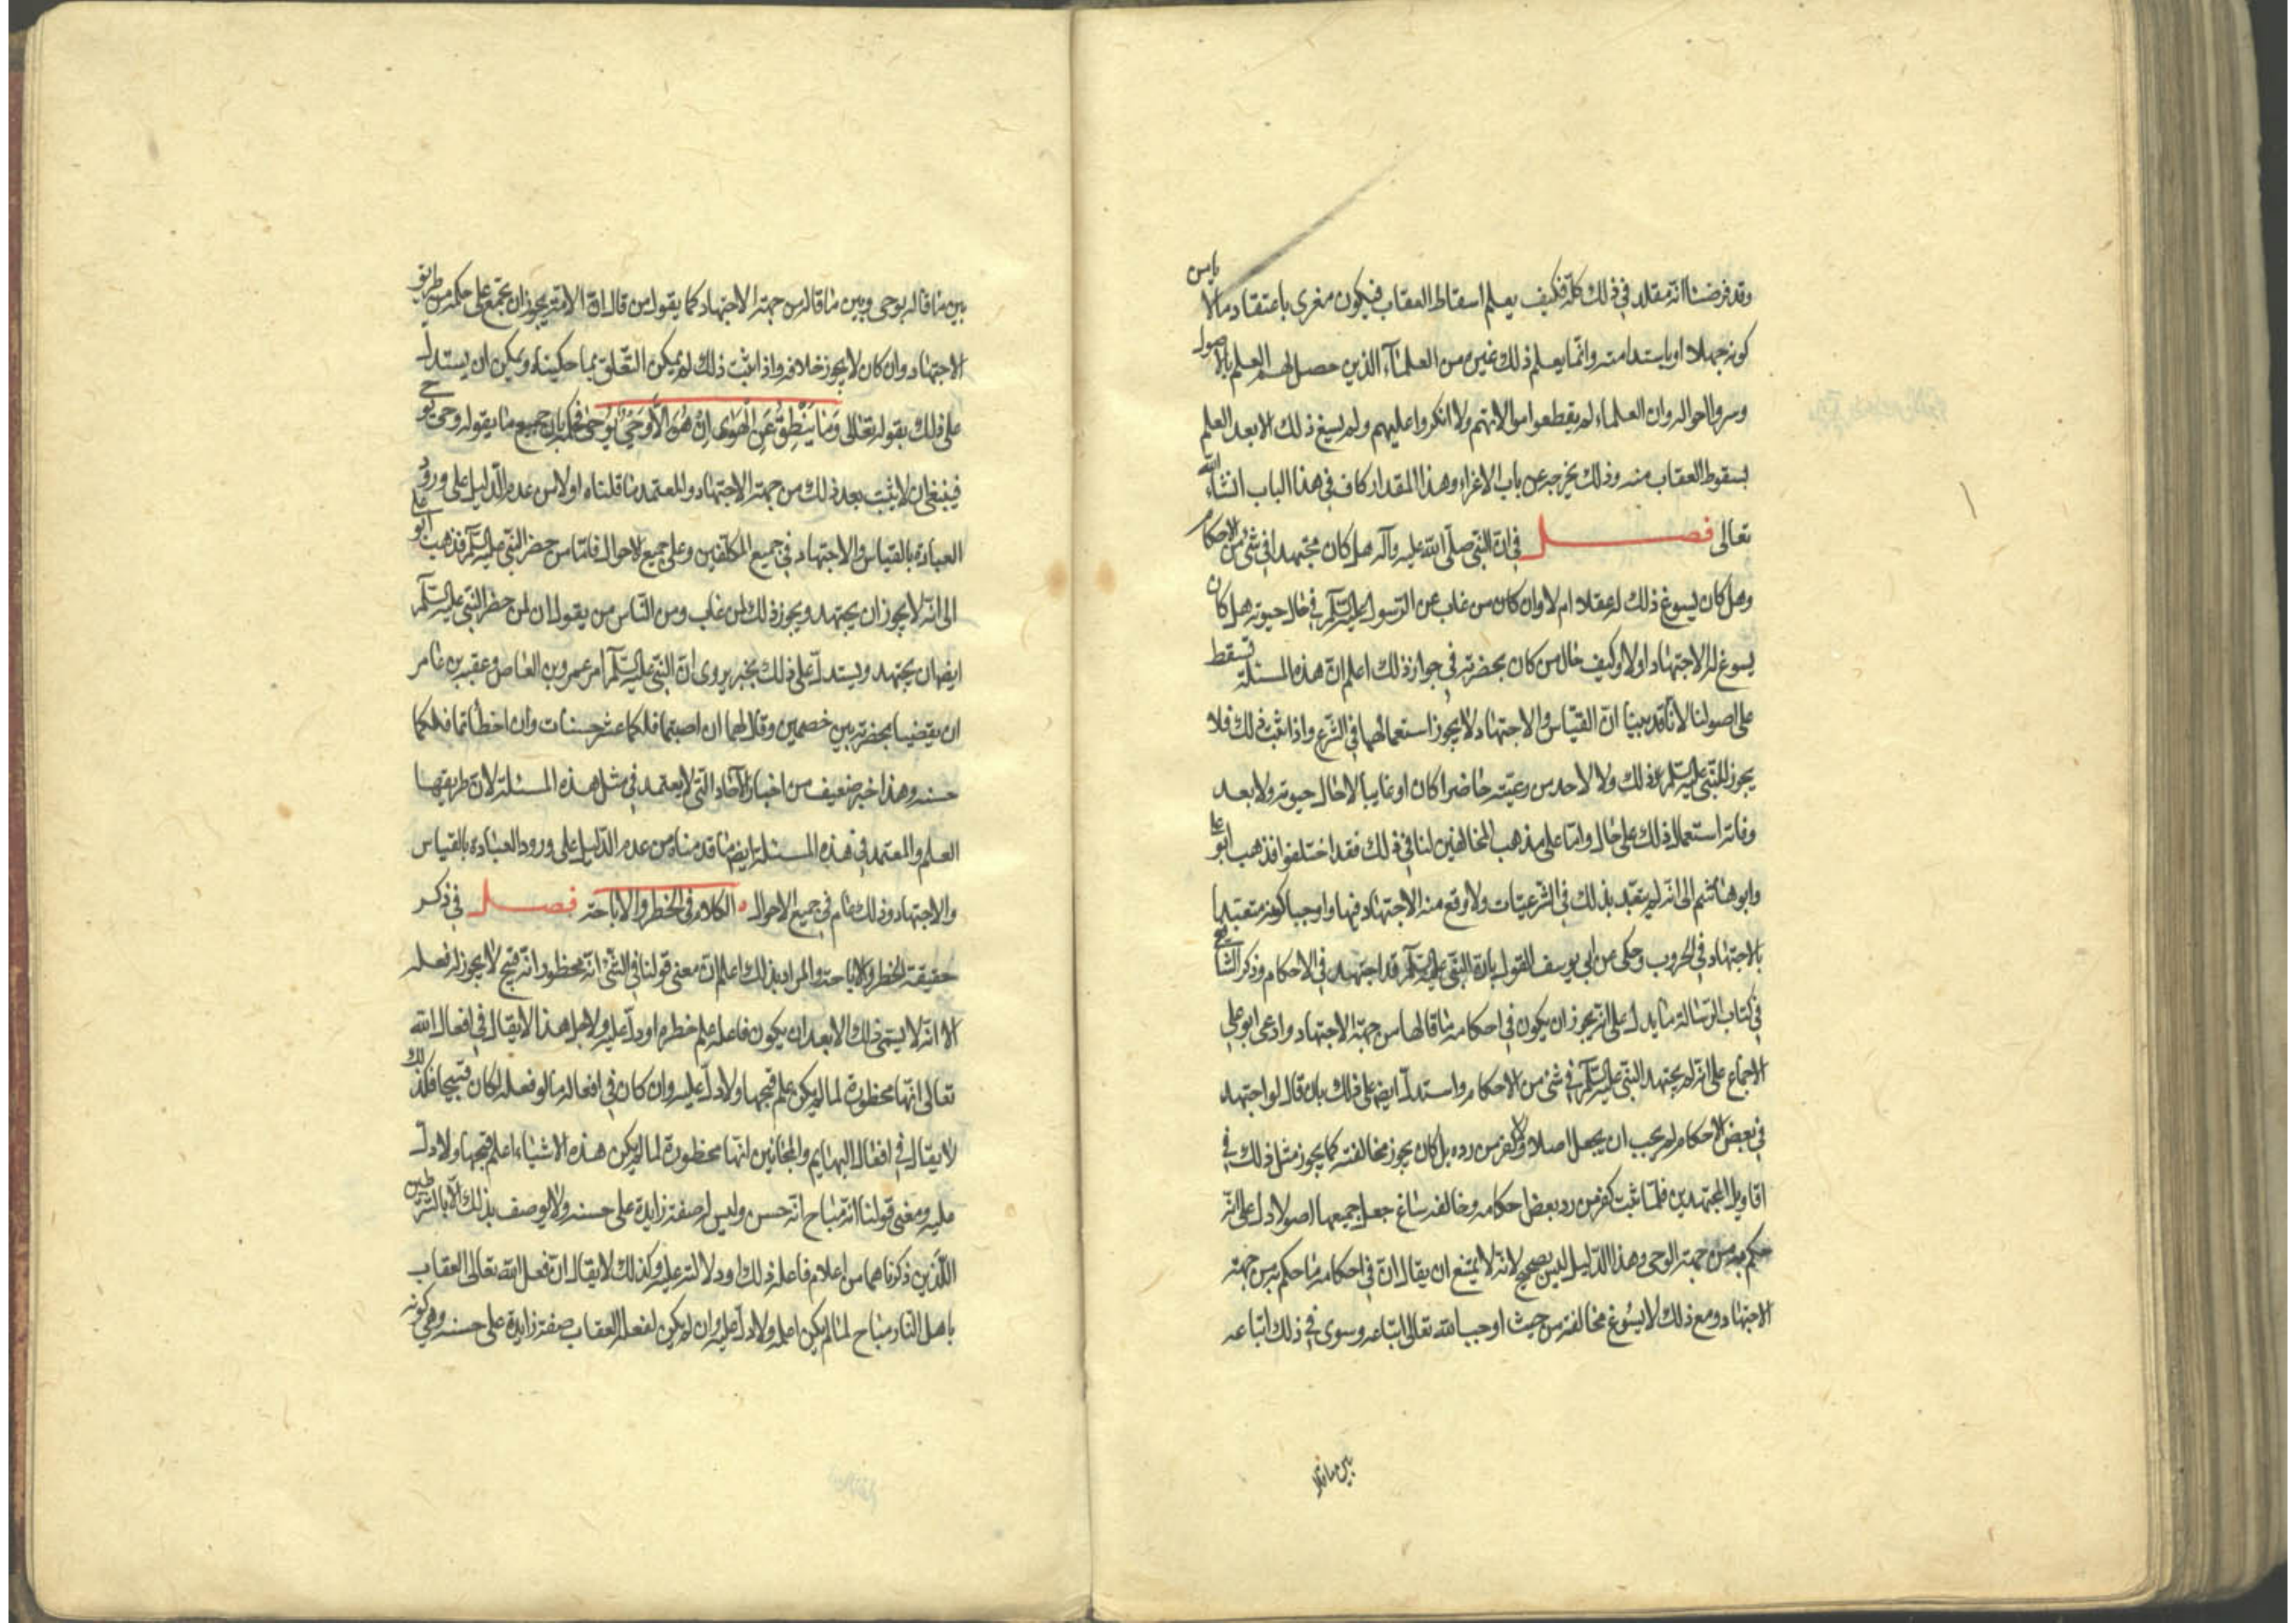 وقد فرضنا انه مقلد في ذلك كله فكيف يعلم اسقاط العقاب فيكون مغرى باعتقاد ما لا يامن
كونه جهلا او باستدامته وانما يعلم ذلك غيره من العلماء الذين حصل لهم العلم بالاصول
وسبروا احواله وان العلماء لم يقطعوا موالاتهم ولا انكروا عليهم ولم يسغ ذلك الا بعد العلم
بسقوط العقاب عنه وذلك يخرجه عن باب الاغراء وهذا المقدار كاف في هذا الباب انشاء الله
تعالى فصل في ان النبي صلى الله عليه وآله هل كان مجتهدا في شئ من الاحكام
وهل كان يسوغ ذلك له عقلا ام لا وان كان من غاب عن الرسول عليه السلم في حال حيوته هل كان
يسوغ له الاجتهاد اولا وكيف حال من كان بحضرته في جواز ذلك اعلم ان هذه المسئلة تسقط
على اصولنا لانا قد بينا ان القياس والاجتهاد لا يجوز استعمالهما في الشرع واذا ثبت ذلك فلا
يجوز للنبي عليه السلم ذلك ولا لاحد من رعيته حاضرا كان او غايبا لا حال حيوته ولا بعد
وفاته استعمال ذلك على حال واما على مذهب المخالفين لنا في ذلك فقد اختلفوا فذهب ابو على
وابو هاشم الى انه لم يتعبد بذلك في الشرعيات ولا وقع منه الاجتهاد فيها واوجبا كونه متعبدا
بالاجتهاد في الحروب وحكى من ابي يوسف القول بان النبي عليه السلم قد اجتهد في الاحكام وذكر الشافعي
في كتاب الرسالة ما يدل على انه يجوز ان يكون في احكامه ما قالها من جهة الاجتهاد وادعى ابو علي
الاجماع على انه لم يجتهد النبي عليه السلم في شئ من الاحكام واستدل ايضا على ذلك بان قال لو اجتهد
في بعض الاحكام لم يجب ان يجعل اصلا ولا كفر من رده بل كان يجوز مخالفته كما يجوز مثل ذلك في
اقاويل المجتهدين فلما ثبت كفر من رد بعض احكامه وخالفه ساغ جعل جميعها اصولا دل على انه
حكم به من جهة الوحي وهذا الدليل ليس بصحيح لانه لا يمتنع ان يقال ان في احكامه ما حكم به من جهة
الاجتهاد ومع ذلك لا يسوغ مخالفته من حيث اوجب الله تعالى اتباعه وسوى في ذلك اتباعه
بين ما قاله
بين ما قاله بوحى وبين ما قاله من جهة الاجتهاد كما يقول من قال ان الامة يجوز ان تجتمع على حكم من طريق
الاجتهاد وان كان لا يجوز خلافه واذا ثبت ذلك لم يكن التعلق بما حكيناه ويمكن ان يستدل
على ذلك بقوله تعالى وَمَا يَنْطِقُ عَنِ الْهَوٰى اِنْ هُوَ اِلَّا وَحْىٌ يُوحٰى فحكم بان جميع ما يقوله وحى يوحى
فينبغي ان لا يثبت بعد ذلك من جهة الاجتهاد والمعتمد ما قلناه اولا من عدم الدليل على ورود
العبادة بالقياس والاجتهاد في جميع المكلفين وعلى جميع الاحوال فاما من حضر النبي عليه السلم فذهب ابو على
الى انه لا يجوز ان يجتهد ويجوز ذلك لمن غاب ومن الناس من يقول ان لمن حضر النبي عليه السلم
ايضا ان يجتهد ويستدل على ذلك بخبر يروى ان النبي عليه السلم امر عمرو بن العاص وعقبة بن عامر
ان يقضيا بحضرته بين خصمين وقال لهما ان اصبتما فلكما عشر حسنات وان اخطأتما فلكما
حسنه وهذا خبر ضعيف من اخبار الآحاد التي لا يعتمد في مثل هذه المسئلة لان طريقها
العلم والمعتمد في هذه المسئلة ايضا ما قدمناه من عدم الدليل على ورود العبادة بالقياس
والاجتهاد وذلك عام في جميع الاحوال الكلام في الحظر والاباحة فصل في ذكر
حقيقة الحظر والاباحة والمراد بذلك اعلم ان معنى قولنا في الشئ انه محظور انه قبيح لا يجوز له فعله
الا انه لا يسمى ذلك الا بعد ان يكون فاعله علم حظره او دل عليه ولاجل هذا لا يقال في افعال الله
تعالى انها محظورة لما لم يكن علم قبحها ولا دل عليه وان كان في افعاله ما لو فعله لكان قبيحا فكذلك
لا يقال في افعال البهايم والمجانين انها محظورة لما لم يكن هذه الاشياء اعلم قبحها ولا دل
عليه ومعنى قولنا انه مباح انه حسن وليس له صفة زايدة على حسنه ولا يوصف بذلك الا بالشرطين
اللذين ذكرناهما من اعلام فاعله ذلك او دلالته عليه وكذلك لا يقال ان فعل الله تعالى العقاب
باهل النار مباح لما لم يكن اعلم ولا دل عليه وان لم يكن لفعل العقاب صفة زايدة على حسنه وهي كونه